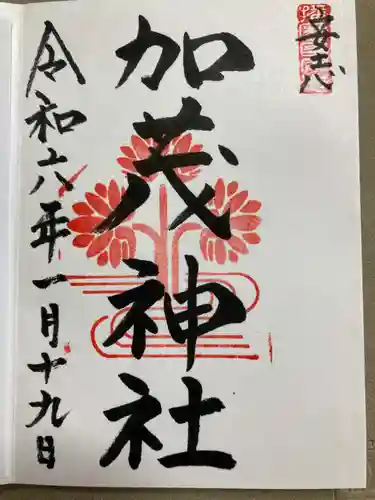 安志
加茂神社
令和六年一月十九日